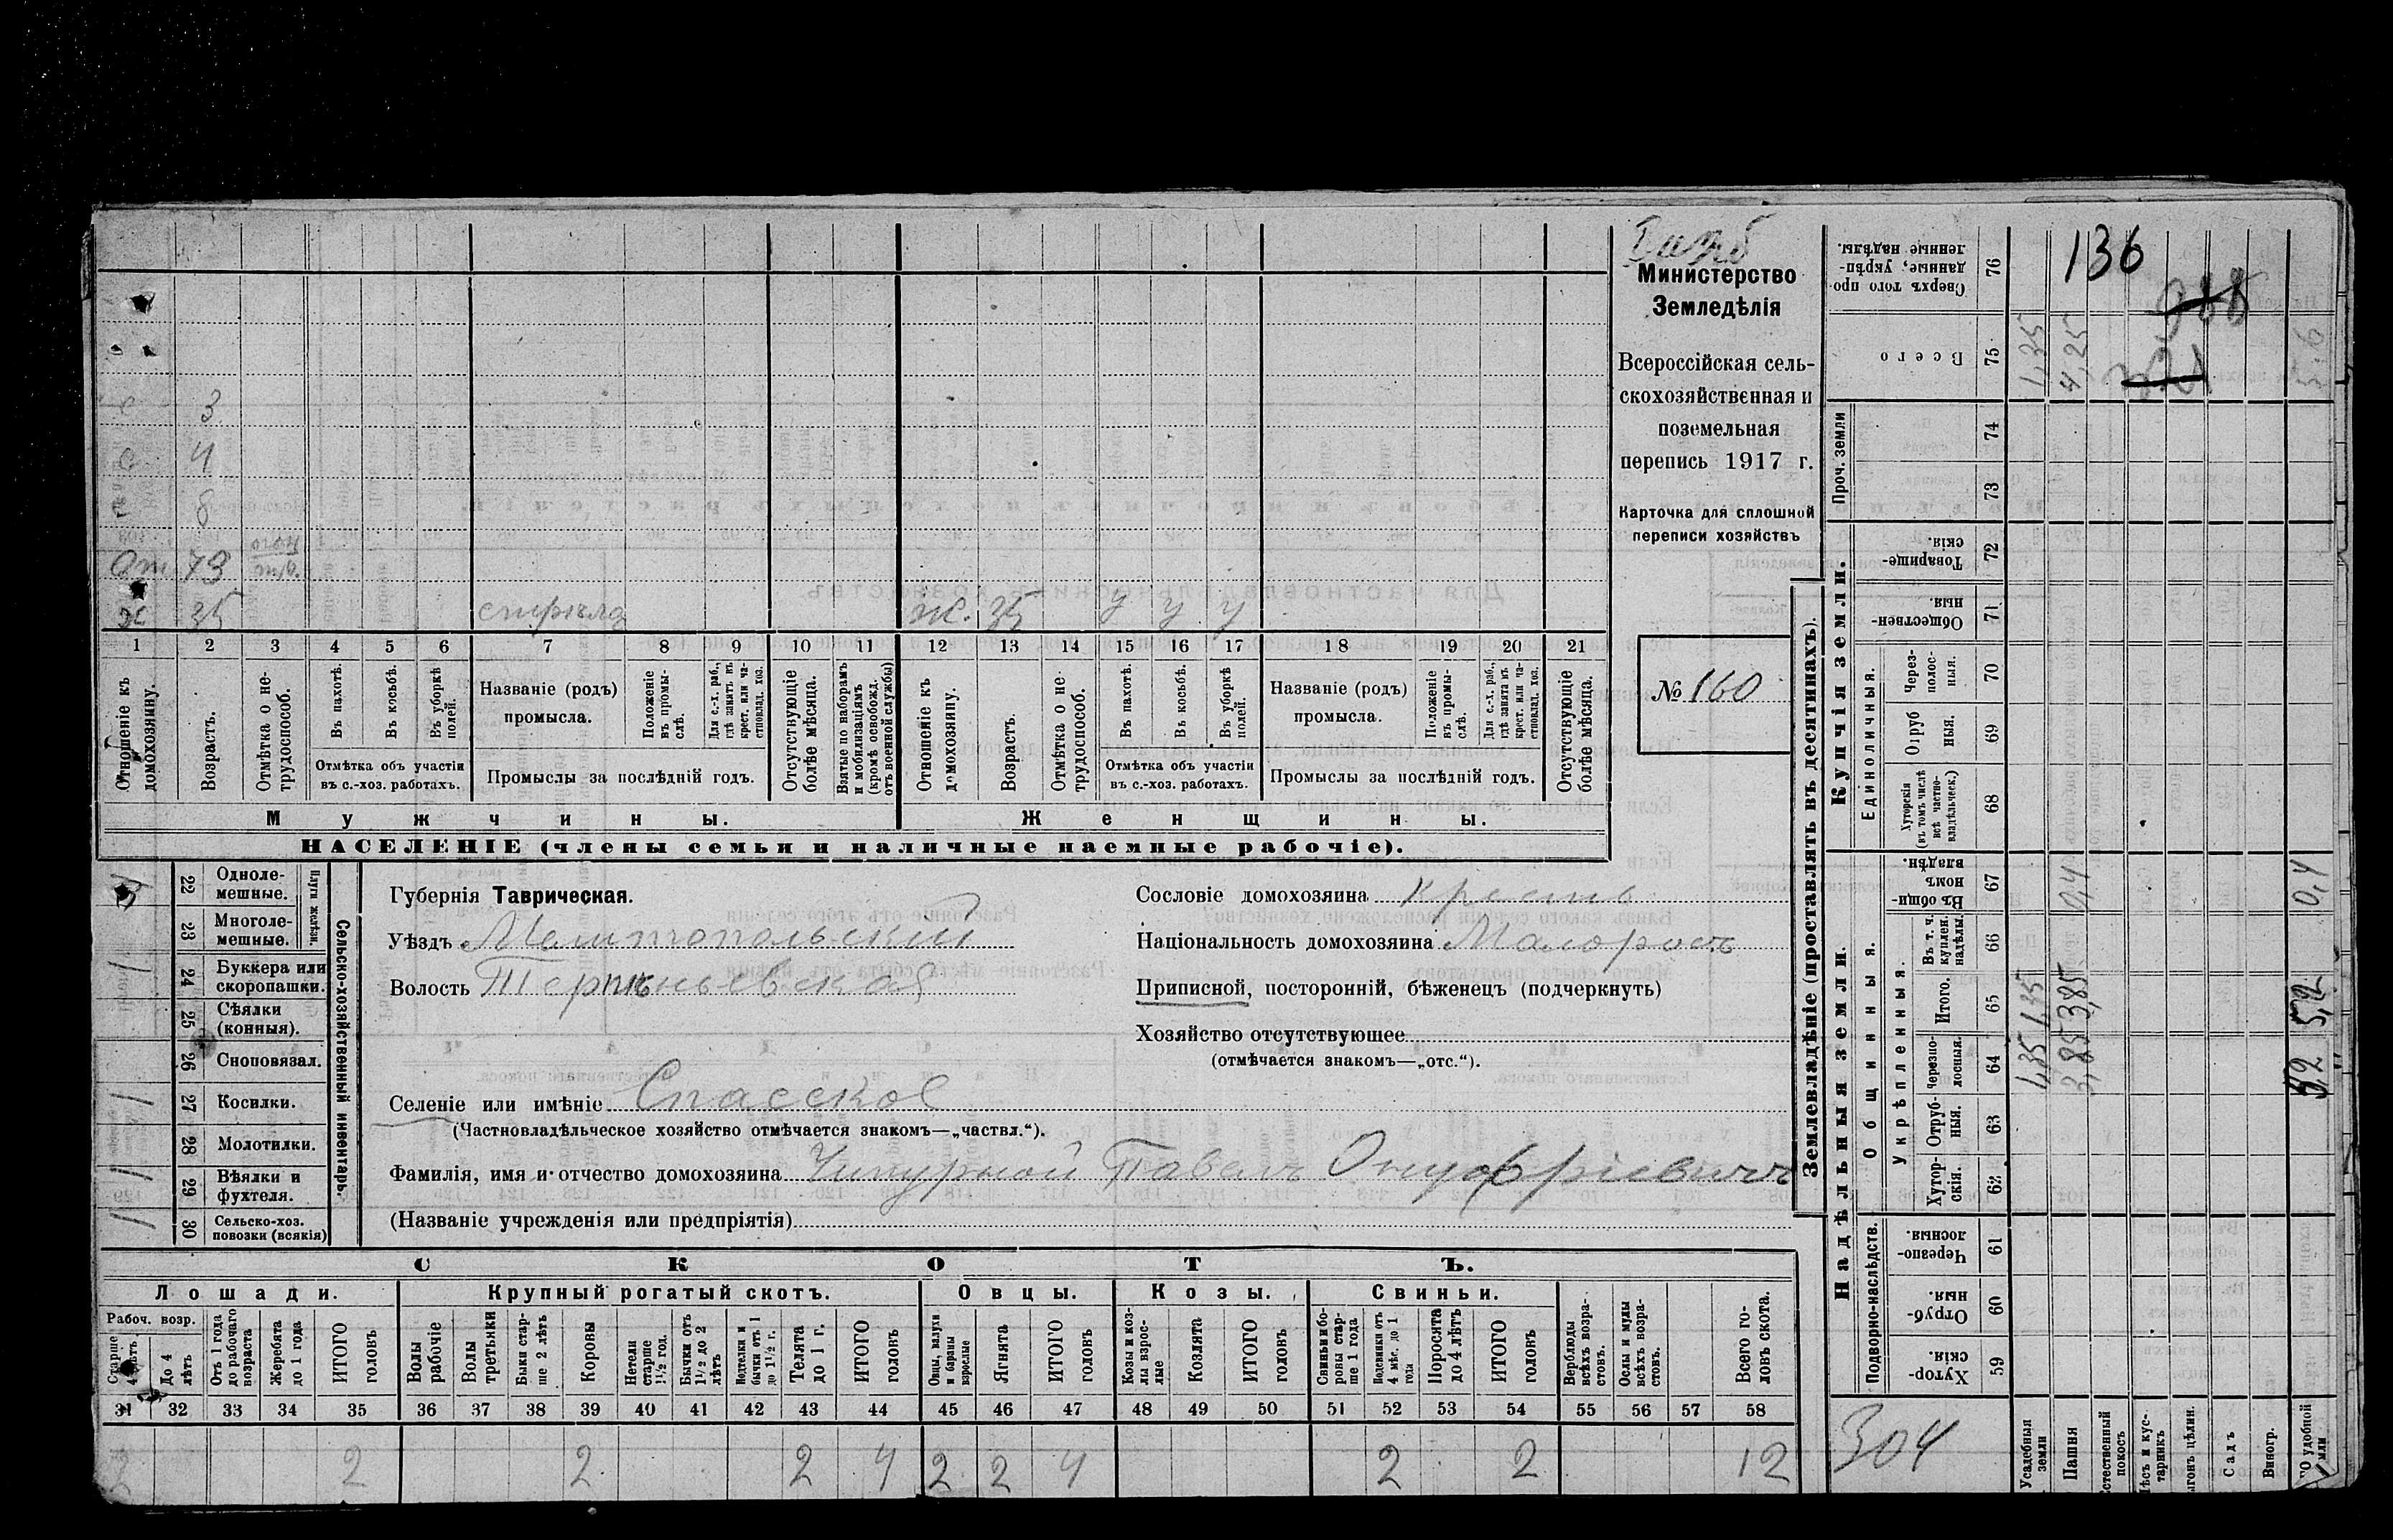 Министерство
Земледѣлія
Всероссійская сель-
скохозяйственная и
поземельная
перепись 1917 г.
Карточка для сплошной
переписи хозяйствъ
№ 160
с 3
с 4
с 8
От. 73
х 35
ж. 35 у у у
1 2 3 4 5 6 7 8 9 10 11 12 13 14 15 16 17 18 19 20 21
Отношеніе къ домохозяину.
Возрастъ.
Отмѣтка о не-трудоспособ.
Въ пахотѣ.
Въ косьбѣ.
Въ уборкѣ полей.
Отмѣтка объ участіи
въ с.-хоз. работахъ.
Названіе (родъ)
промысла.
Положеніе въ промы-слѣ.
Для с.-х. раб., гдѣ занятъ въ крест. или ча-стновлад. хоз.
Промыслы за послѣдній годъ.
Отсутствующіе болѣе мѣсяца.
Взятые по наборамъ и мобилизаціямъ (кромѣ освобожд. отъ военной службы)
Отношеніе къ домохозяину.
Возрастъ.
Отмѣтка о не-трудоспособ.
Въ пахотѣ.
Въ косьбѣ.
Въ уборкѣ полей.
Отмѣтка объ участіи
въ с.-хоз. работахъ.
Названіе (родъ)
промысла.
Положеніе въ промы-слѣ.
Для с.-х. раб., гдѣ занята въ крест. или ча-стновлад. хоз.
Промыслы за послѣдній годъ.
Отсутствующіе болѣе мѣсяца.
Мужчины.
Женщины.
НАСЕЛЕНІЕ (члены семьи и наличные наемные рабочіе).
Сельско-хозяйственный инвентарь.
Плуги желѣзн.
22 Одноле-мешные.
23 Многоле-мешные.
24 Буккера или скоропашки.
25 Сѣялки (конныя).
26 Сноповязал.
27 Косилки.
28 Молотилки.
29 Вѣялки и фухтеля.
30 Сельско-хоз. повозки (всякія)
Губернія Таврическая.
Уѣздъ Мелитопольскій
Волость Терпѣньевская
Сословіе домохозяина крестъ
Національность домохозяина Малоросъ
Приписной, посторонній, бѣженецъ (подчеркнуть)
Хозяйство отсутствующее
(отмѣчается знакомъ—„отс.“).
Селеніе или имѣніе Спасское
(Частновладѣльческое хозяйство отмѣчается знакомъ—„частвл.“).
Фамилія, имя и отчество домохозяина Чипурной Павелъ Онуфріевичъ
(Названіе учрежденія или предпріятія)
СКОТЪ.
Лошади. Крупный рогатый скотъ. Овцы. Козы. Свиньи.
Рабоч. возр.
Старше 4 лѣтъ
До 4 лѣтъ
Отъ 1 года до рабочаго возраста
Жеребята до 1 года
ИТОГО головъ
Волы рабочіе
Волы третьяки
Быки стар-ше 2 лѣтъ
Коровы
Нетели старше 1½ год.
Бычки отъ 1½ до 2 лѣтъ
Подтелки и бычки отъ 1 до 1½ г.
Телята до 1 г.
ИТОГО головъ
Овцы, валухи и бараны взрослые
Ягнята
ИТОГО головъ
Козы и коз-лы взрос-лые
Козлята
ИТОГО головъ
Свиньи и бо-ровы стар-ше 1 года
Подсвинки отъ 4 мѣс. до 1 года
Поросята до 4 лѣтъ
ИТОГО головъ
Верблюды всѣхъ возра-стовъ.
Ослы и мулы всѣхъ возра-стовъ.
Всего го-ловъ скота.
31 32 33 34 35 36 37 38 39 40 41 42 43 44 45 46 47 48 49 50 51 52 53 54 55 56 57 58
2 2 2 2 4 2 2 4 2 2 12
Землевладѣніе (проставлять въ десятинахъ).
136
Сверхъ того про-данные, укрѣп-ленные надѣлы. 76
Всего 75 1,35 4,25 5.6
Проч. земли 74
73
Купчія земли.
Товарище-скія. 72
Обществен-ныя 71
Единоличныя.
Через-полос-ныя. 70
Отруб ныя. 69
Хуторскія (въ томъ числѣ всѣ частно-владѣльческ.) 68
Надѣльныя земли.
Общинныя.
Въ общин-номъ владѣн. 67 0,4 0,4
Укрѣпленныя.
Въ т. ч. куплен. надѣлы. 66
Итого. 65 1,35 3,85 5,2
Черезпо-лосныя. 64 1,35 3,85 5,2
Отруб-ныя. 63
Хутор-скія. 62
Подворно-наслѣдств.
Черезпо-лосныя. 61
Отруб-ныя. 60
Хутор-скія. 59
304
Усадебныя земли
Пашня
Естественный покосъ
Лѣсъ и кус-тарникъ
Выгонъ цѣлин.
Садъ
Виногр.